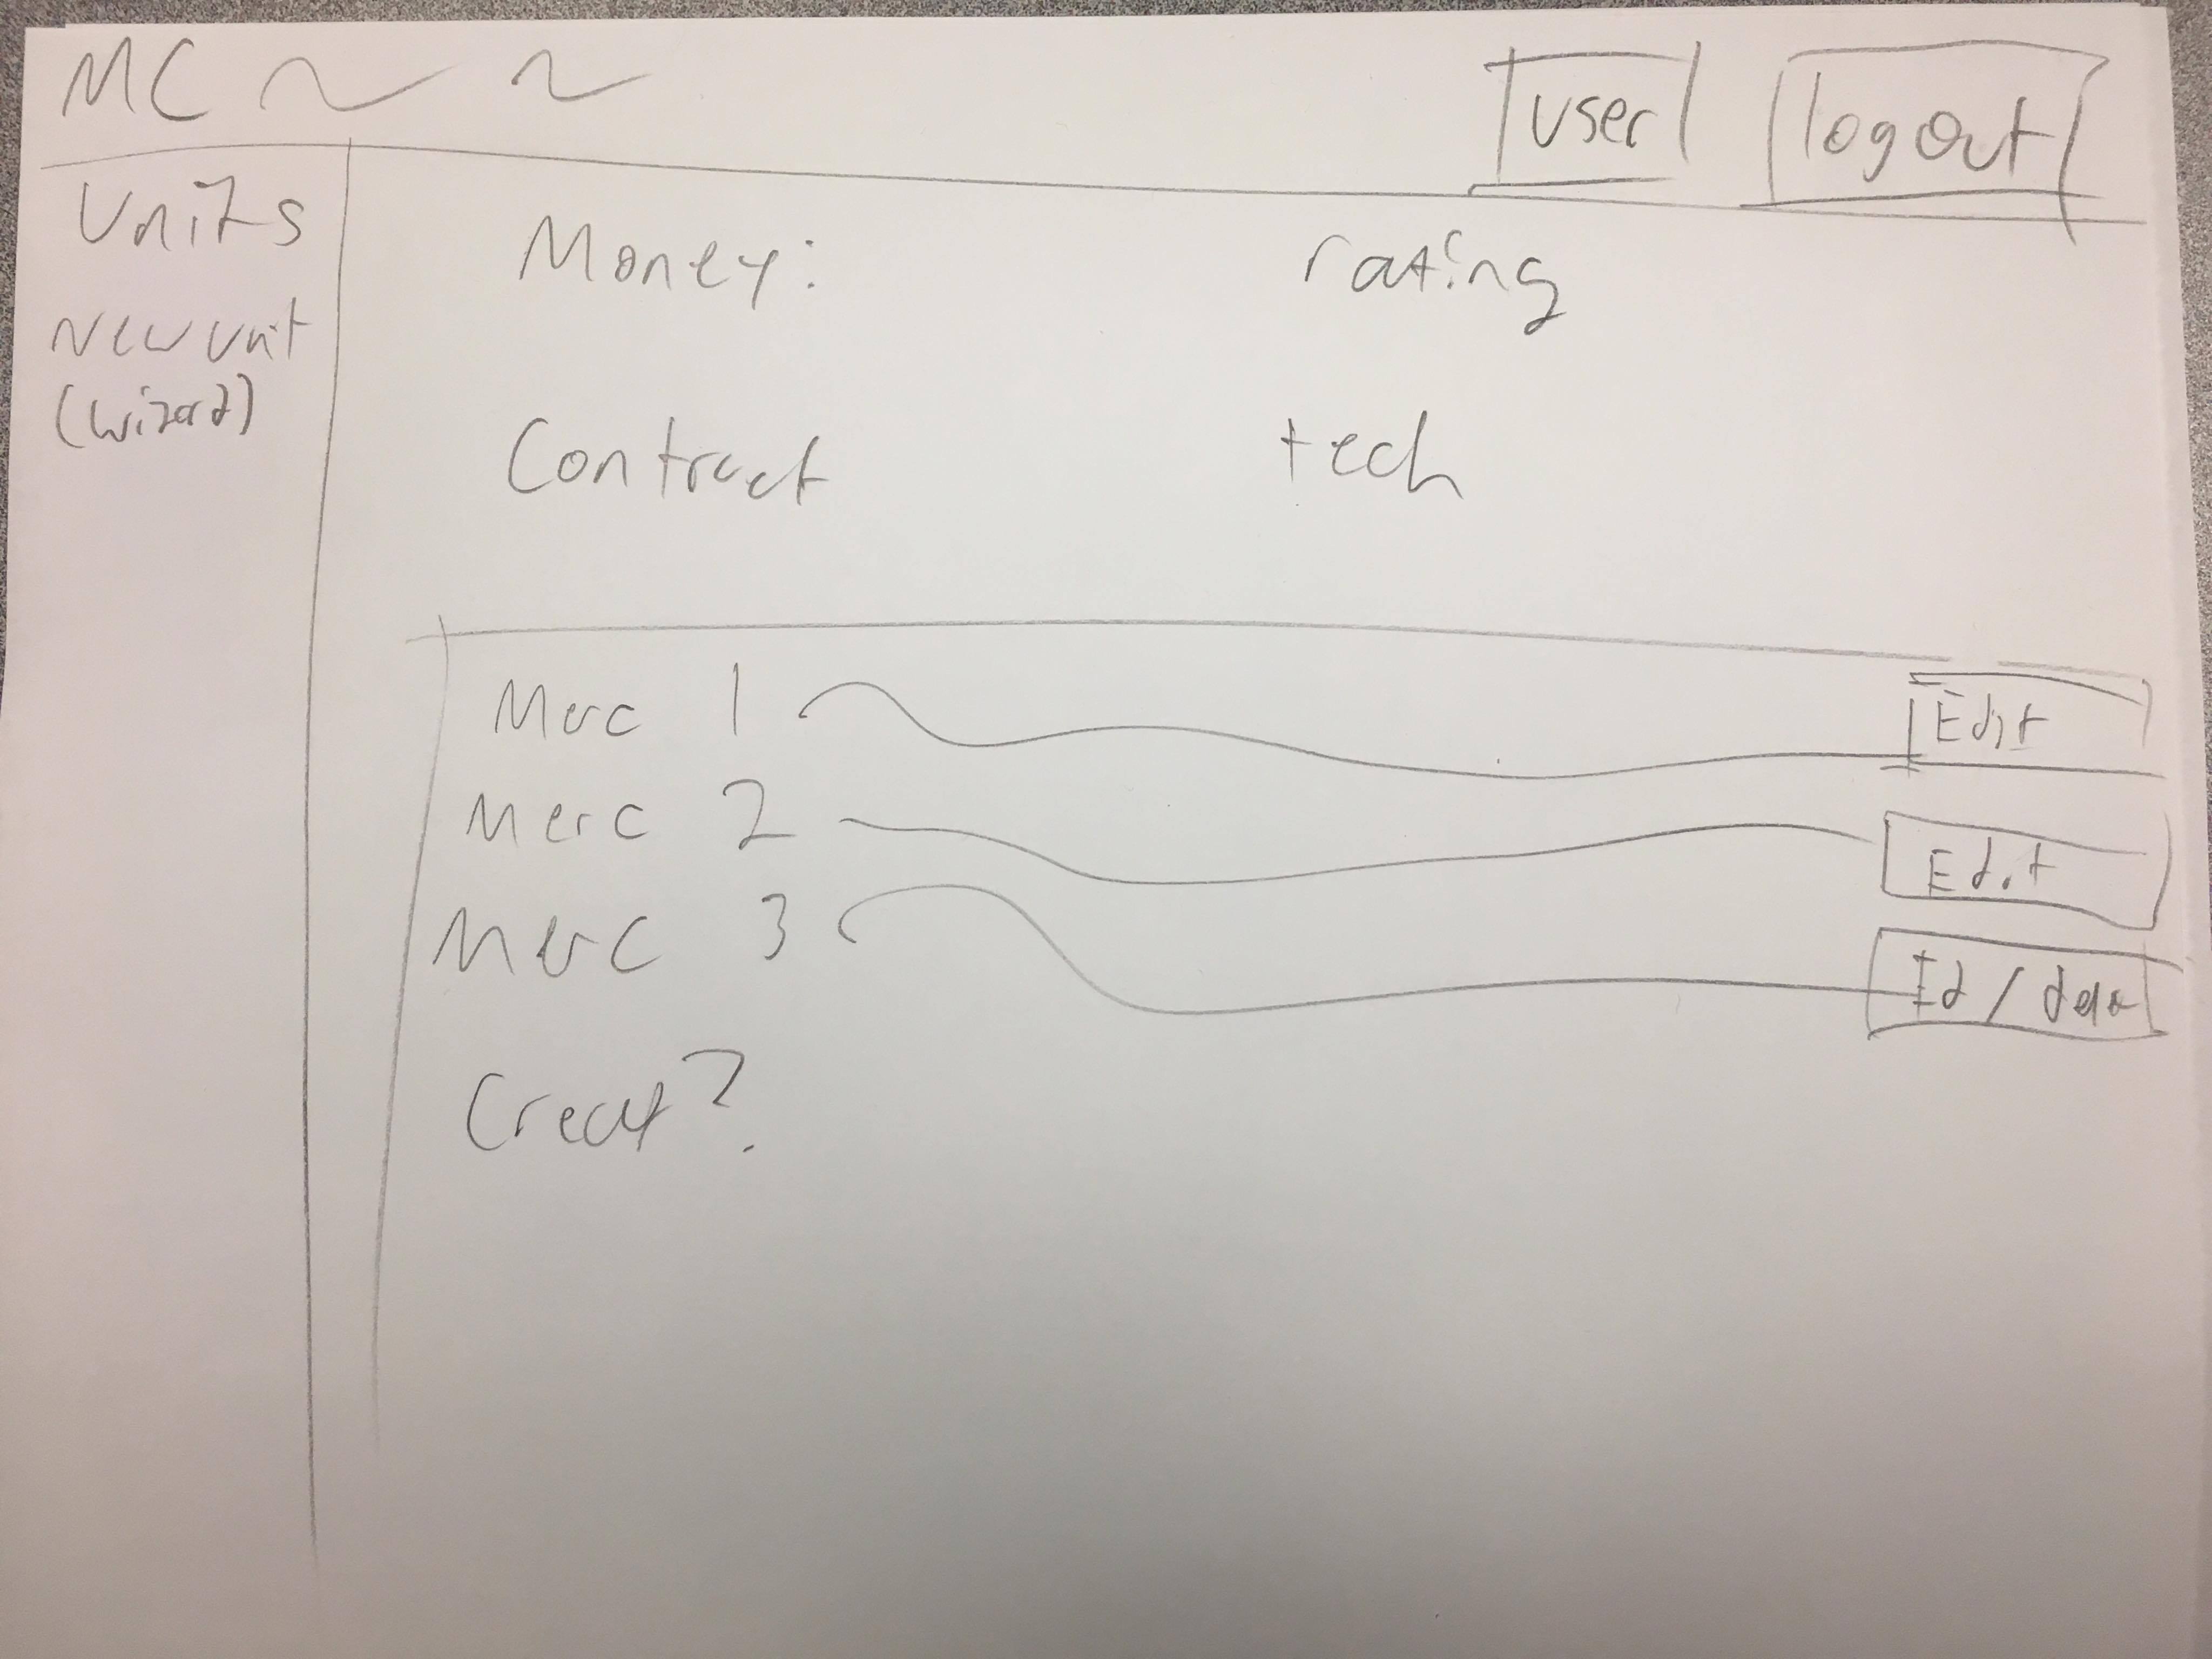 MC
user
logout
Units
New unit
(wizard)
Money:
rating
Contract
tech
Merc 1
Edit
Merc 2
Edit
Merc 3
Ed /
Creat?